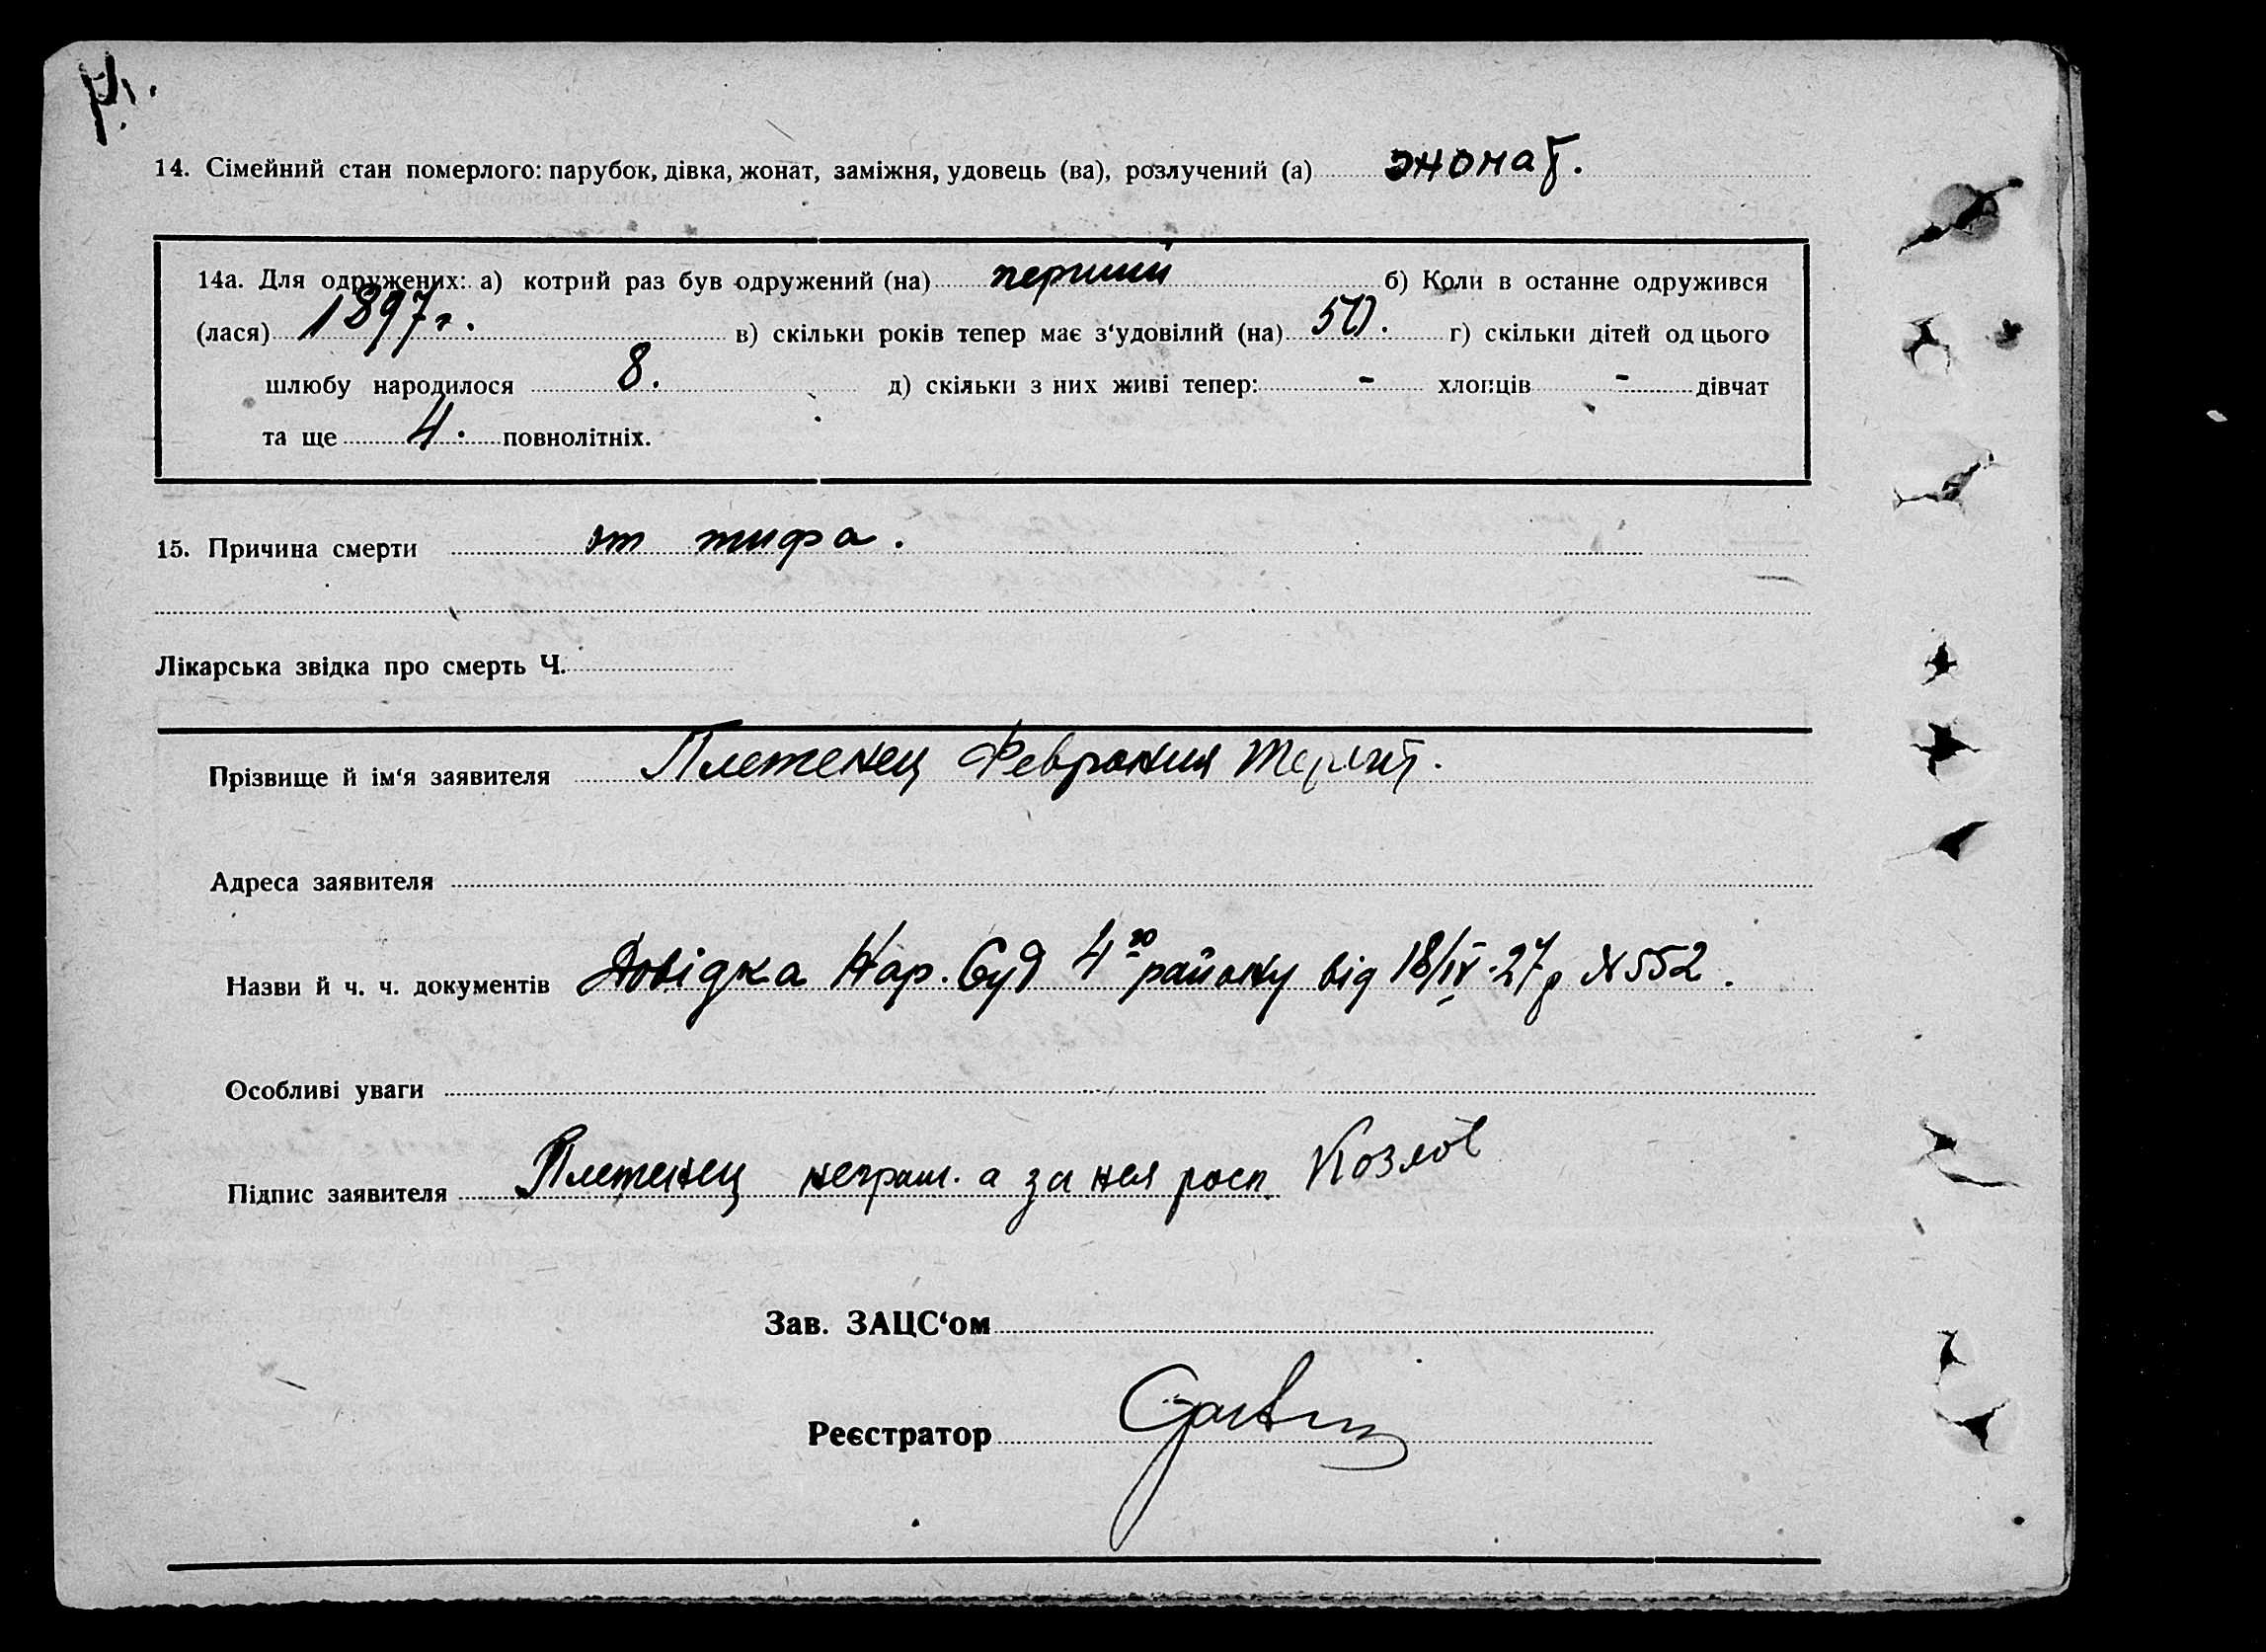 14. Сімейний стан померлого: парубок, дівка, жонат, заміжня, удовець (ва), розлучений (а) жонат.
14а. Для одружених: а) котрий раз був одружений (на) перший б) Коли в останне одружився
(лася) 1897 г. в) скільки років тепер має з‘удовілий (на) 50. г) скільки дітей од цього
шлюбу народилося 8. д) скільки з них живі тепер: - хлопців - дівчат
та ще 4. повнолітніх.
15. Причина смерти от тифа.
Лікарська звідка про смерть Ч.
Прізвище й ім‘я заявителя Плетенец Феврония
Адреса заявителя
Назви й ч. ч. документів Довідка Нар. Суд 4го району від 18/IV-27р №552.
Особливі уваги
Підпис заявителя Плетенец неграм. а за нея росп. Козлов
Зав. ЗАЦС‘ом
Реєстратор